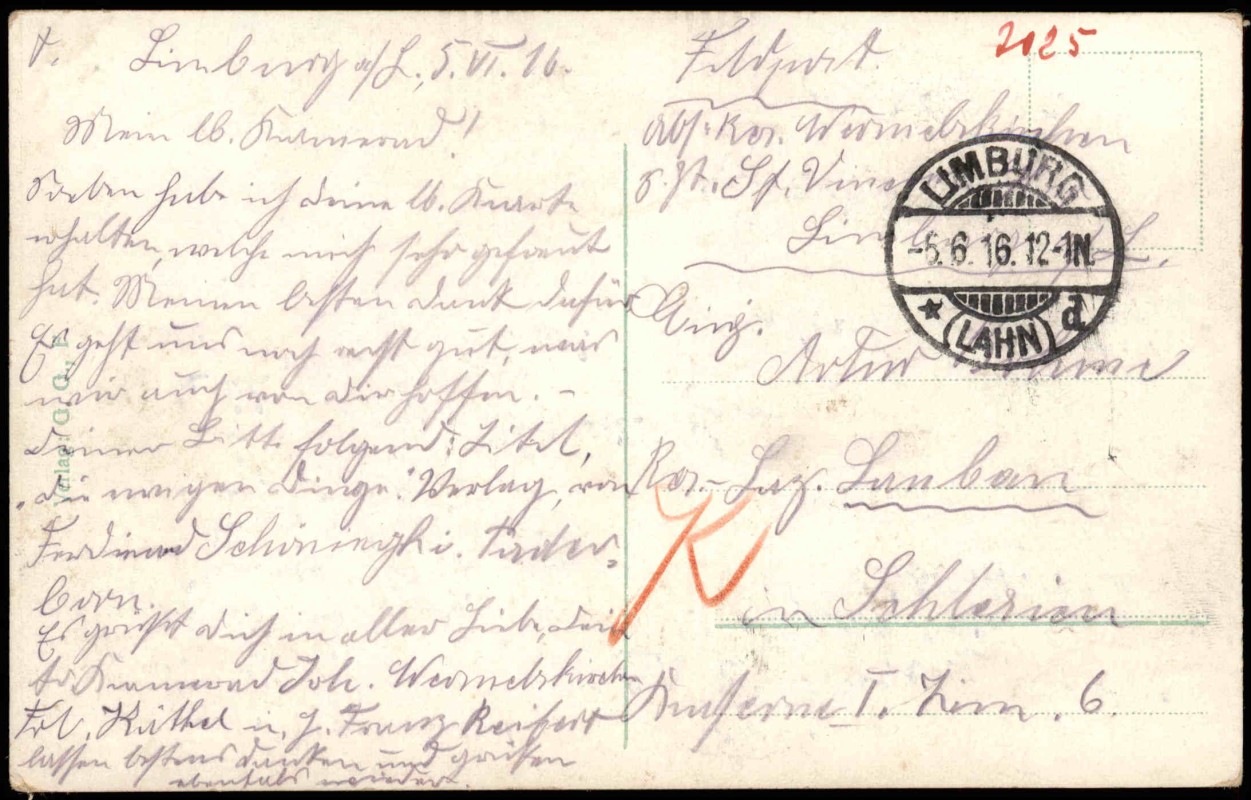 t. Limburg a/L., 5. VI. 16.
Mein lb. Kamerad!
Soeben habe ich deine lb. Karte
erhalten, welche mich sehr gefreut
hat. Meinen besten Dank dafür
Es geht uns noch recht gut, was
wir auch von dir hoffen. –
Deiner Bitte folgend: Titel,
"Die ewigen Dinge". Verlag, von
Ferdinand Schöningh i. Pader-
born.
Es grüßt dich in aller Liebe, dein
tr Kamerad Joh. Wermelskirchen
Frl. Käthel u. H. Franz Reifert
lassen bestens danken und grüßen
ebenfalls wieder.
Verlag: C. G.
2025
Feldpost.
Abs: Kgr. Wermelskirchen
z. Zt. St. Vinc
Limburg a/L.
LIMBURG
-5.6.16.12-1N.
★ (LAHN) d
An
Artur
Res.-Laz. Lauban
K
in Schlesien
Kaserne I. Zim. 6.